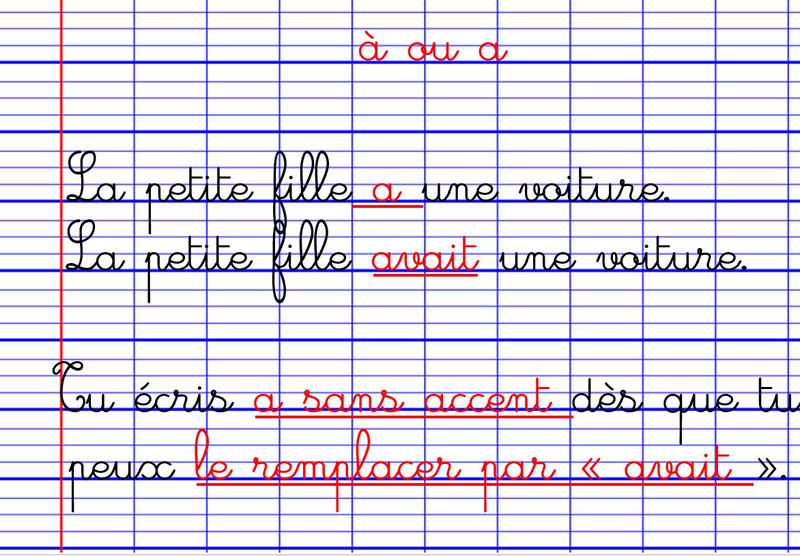 à ou a
La petite fille a une voiture.
La petite fille avait une voiture.
Tu écris a sans accent dès que tu
peux le remplacer par « avait ».